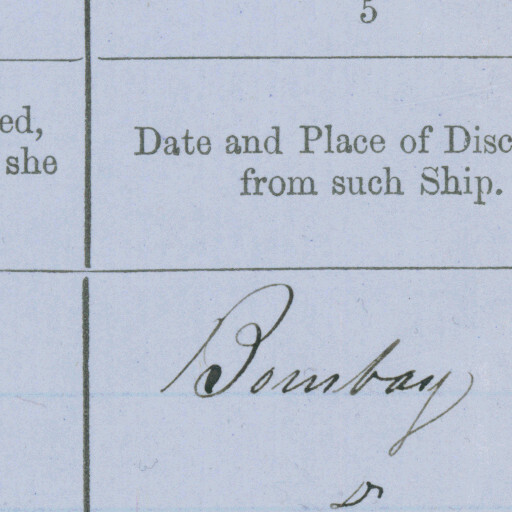 5
ed,
she
Date and Place of Disc
from such Ship.
Bombay
Do